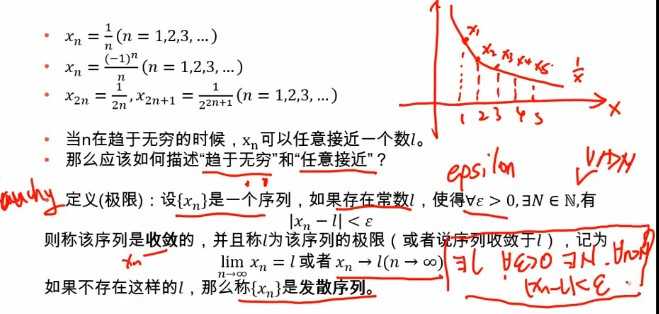 • xₙ = 1/n (n = 1,2,3, …)
• xₙ = (-1)ⁿ/n (n = 1,2,3, …)
• x₂ₙ = 1/2n, x₂ₙ₊₁ = 1/2²ⁿ⁺¹ (n = 1,2,3, …)
x₁ x₂ x₃ x₄ x₅ 1/x
1 2 3 4 5 x
• 当n在趋于无穷的时候，xₙ可以任意接近一个数l。
• 那么应该如何描述“趋于无穷”和“任意接近”？
epsilon
定义(极限)：设{xₙ}是一个序列，如果存在常数l，使得∀ε > 0, ∃N ∈ ℕ,有
|xₙ − l| < ε
则称该序列是收敛的，并且称l为该序列的极限（或者说序列收敛于l），记为
xₙ
lim n→∞ xₙ = l 或者 xₙ → l(n → ∞)
∃l ∀ε>0 ∃N ∀n>N
|xₙ-l|<ε
如果不存在这样的l，那么称{xₙ}是发散序列。